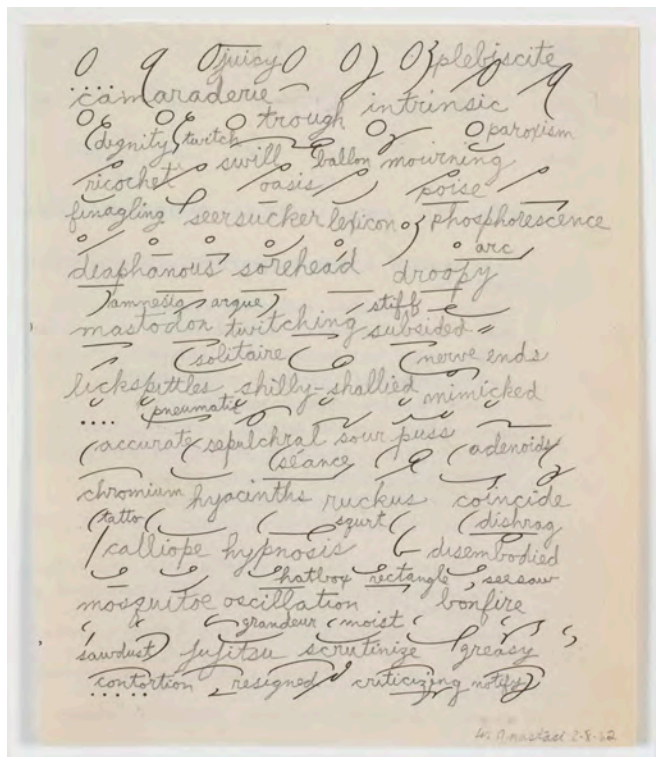 juicy plebiscite
camaraderie intrinsic
trough
dignity twitch paroxism
swill ballon mourning
ricochet oasis poise
finagling seersucker lexicon phosphorescence
arc
diaphanous sorehead droopy
amnesia argue stiff
mastodon twitching subsided
solitaire nerve ends
lickspittles shilly-shallied mimicked
pneumatic
accurate sepulchral sour puss adenoids
séance
chromium hyacinths ruckus coincide
tatto squrt dishrag
calliope hypnosis disembodied
hatbox rectangle, seesaw
mosquitoe oscillation bonfire
grandeur moist
sawdust jujitsu scrutinize greasy
contortion resigned criticizing notify
W. Anastasi 2-8-62